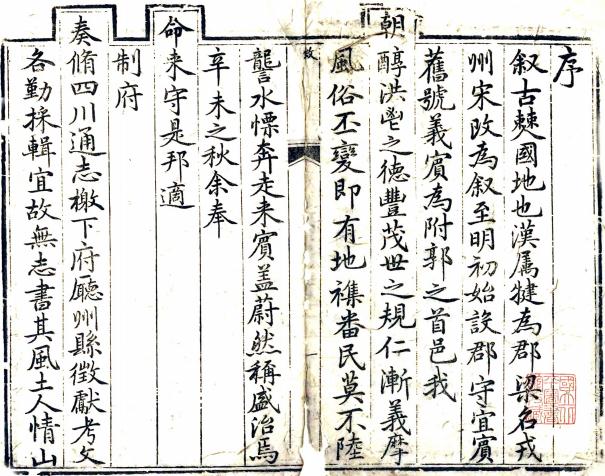 序
叙古僰國地也漢属犍為郡梁名戎
州宋改為叙至明初始設郡守宜賓
舊號義賓為附郭之首邑我
朝醇洪鬯之徳豐茂世之規仁漸義摩
風俗丕變即有地襍番民莫不陸
讋水慄奔走来賓盖蔚然稱盛治焉
辛未之秋余奉
命来守是邦適
制府
奏脩四川通志檄下府廳州縣徵獻考文
各勤採輯宜故無志書其風土人情山